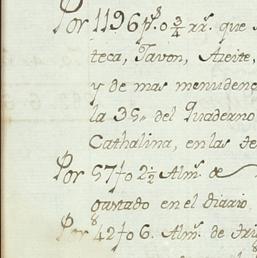 Por 1196 ps. 0 3/4 rr. que
teca, Javon, Azeite,
y de mas menudenc
la 35,, del Quaderno
Cathalina, en las
Por 57 fo 2 1/2 Alms. de
gastado en el diario
Por 842 fo 6. Alms. de